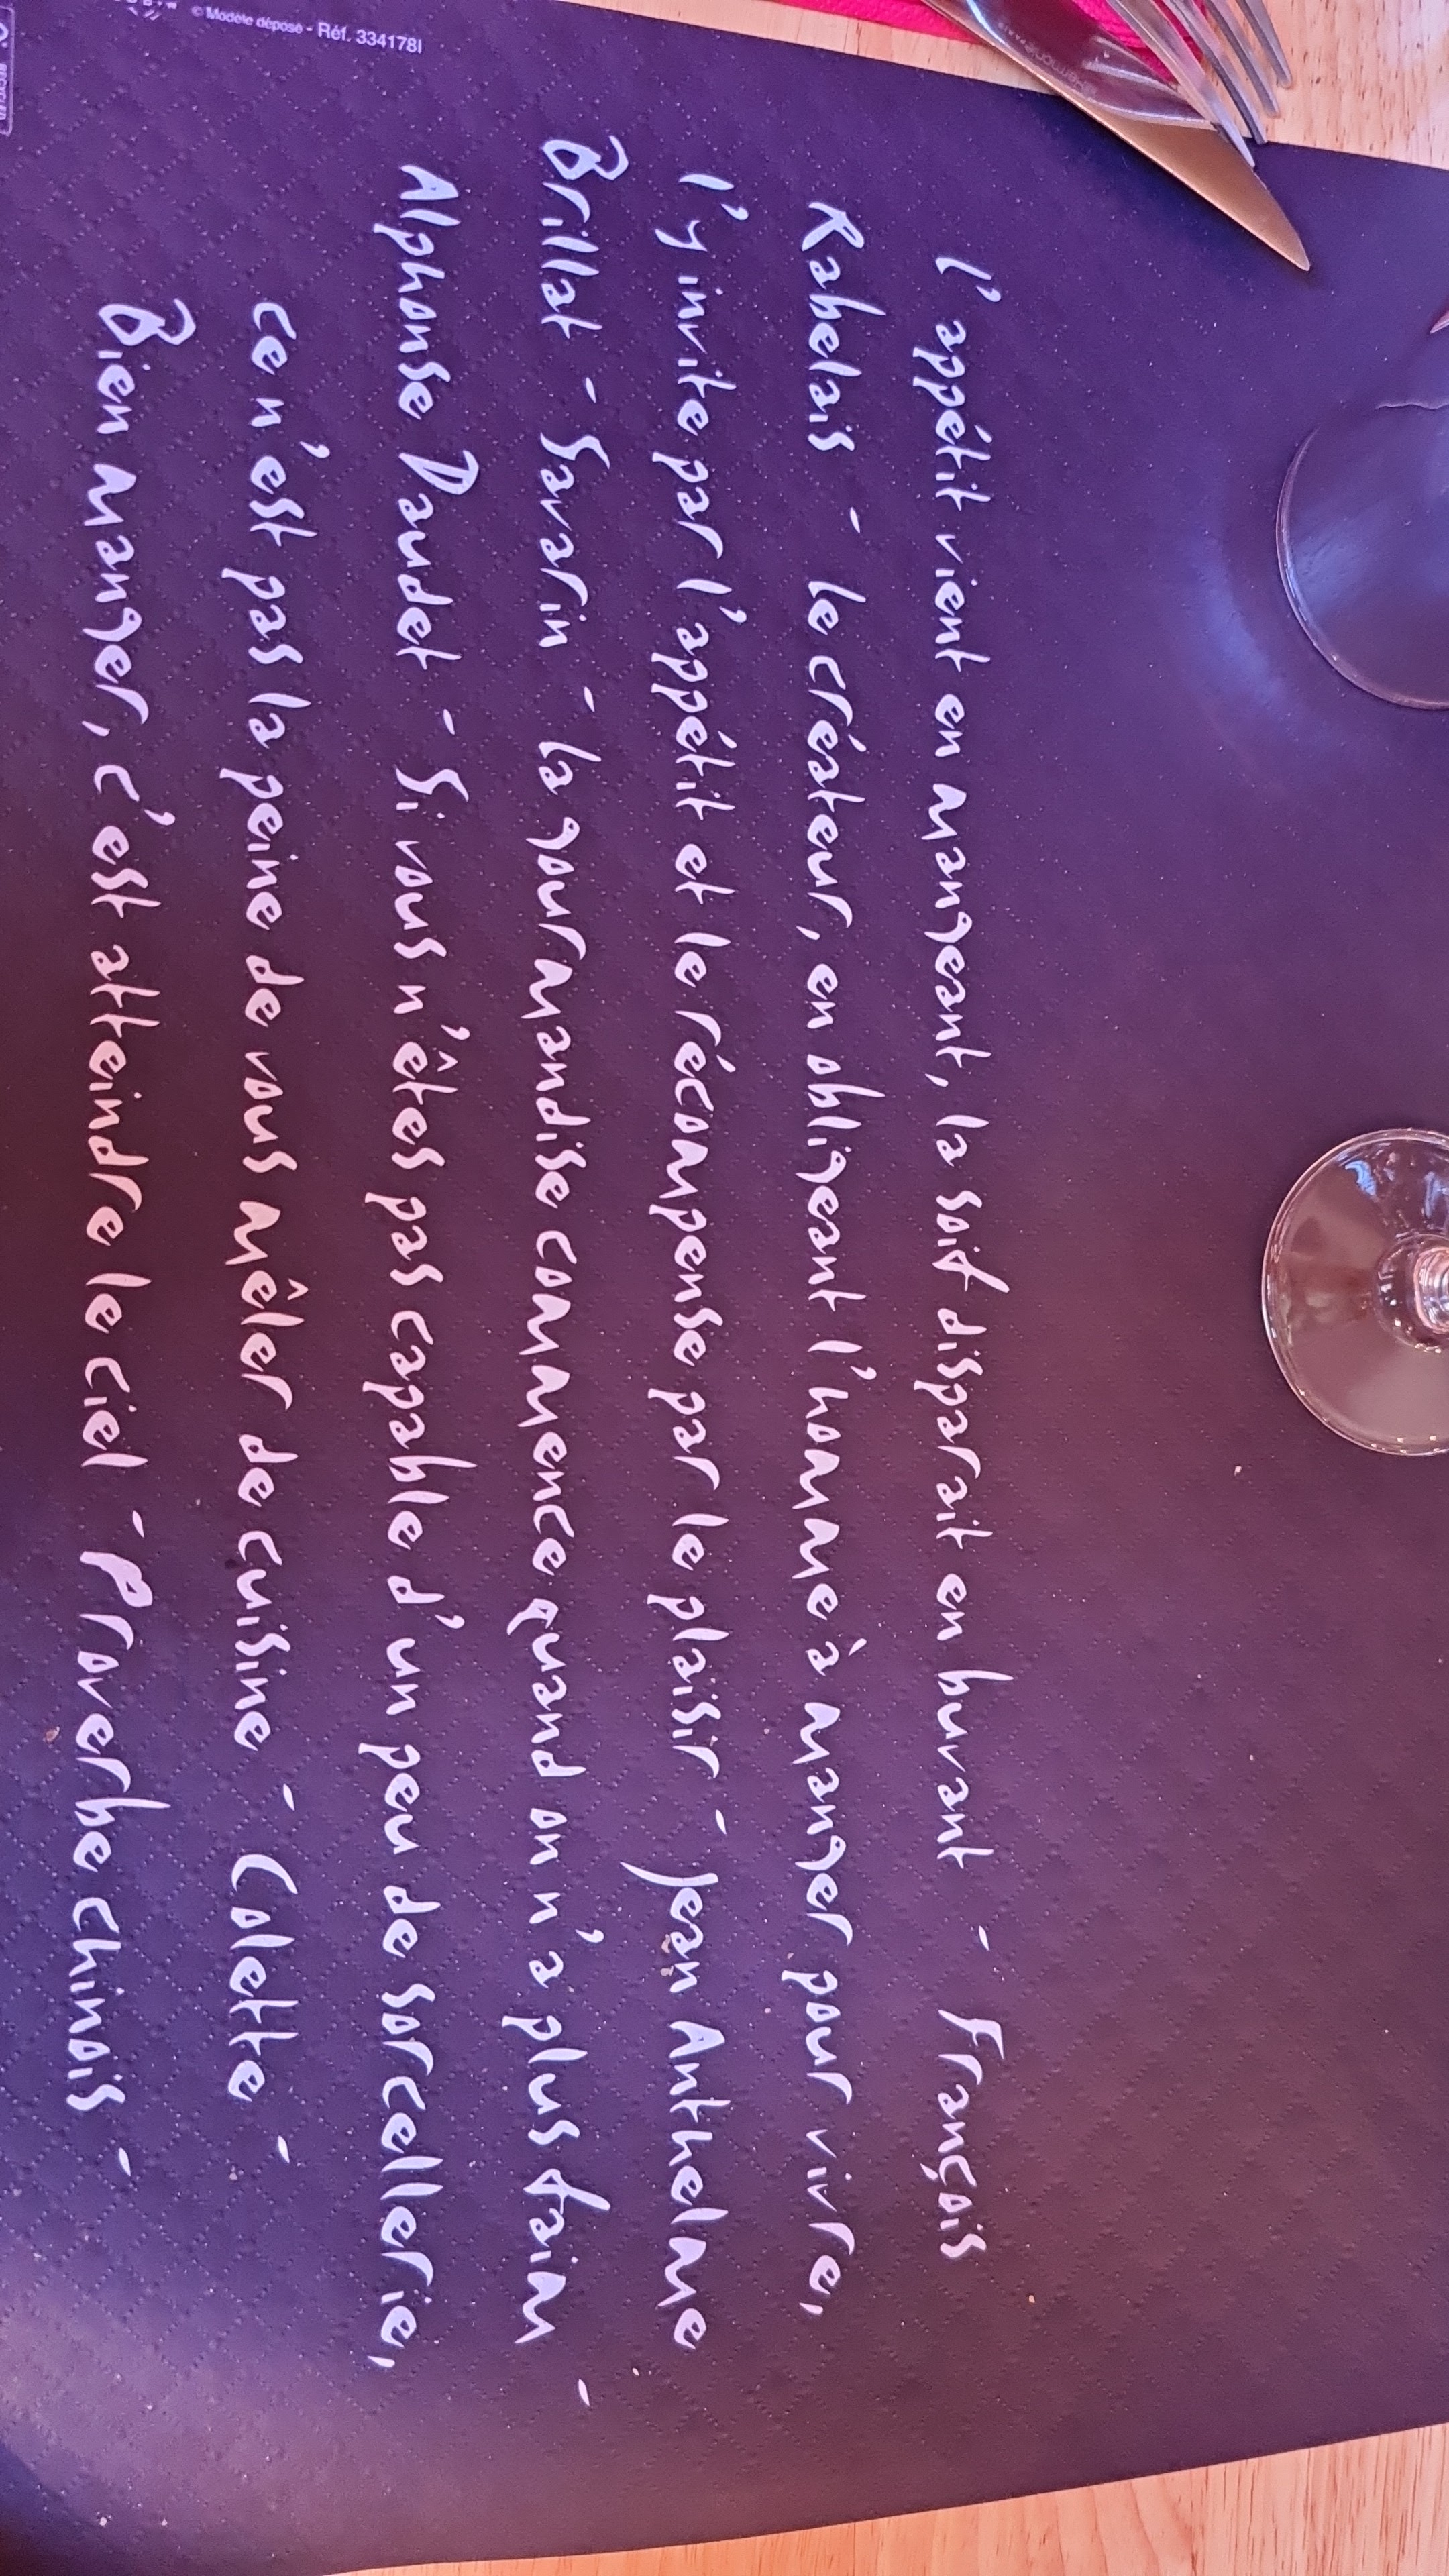 l'appétit vient en mangeant, la soif disparait en buvant - François
Rabelais - le créateur, en obligeant l'homme à manger pour vivre,
l'y invite par l'appétit et le récompense par le plaisir - Jean Anthelme
Brillat - Savarin - la gourmandise commence quand on n'a plus faim -
Alphonse Daudet - Si vous n'êtes pas capable d'un peu de sorcellerie,
ce n'est pas la peine de vous mêler de cuisine - Colette -
Bien manger, c'est atteindre le ciel - Proverbe chinois -
© Modèle déposé - Réf. 334178I